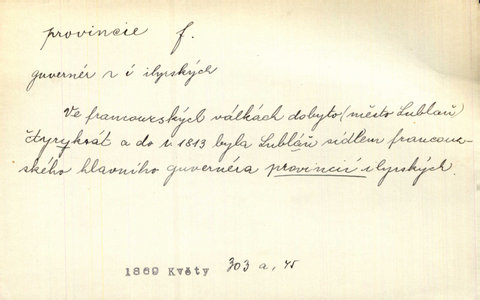 provincie f.
guvernér z í ilyrských
Ve francouzských válkách dobyto (město Lublaň)
čtyrykrát a do r. 1813 byla Lubláň sídlem francouz-
ského hlavního guvernéra provincií ilyrských.
1869 Květy 303 a, 45